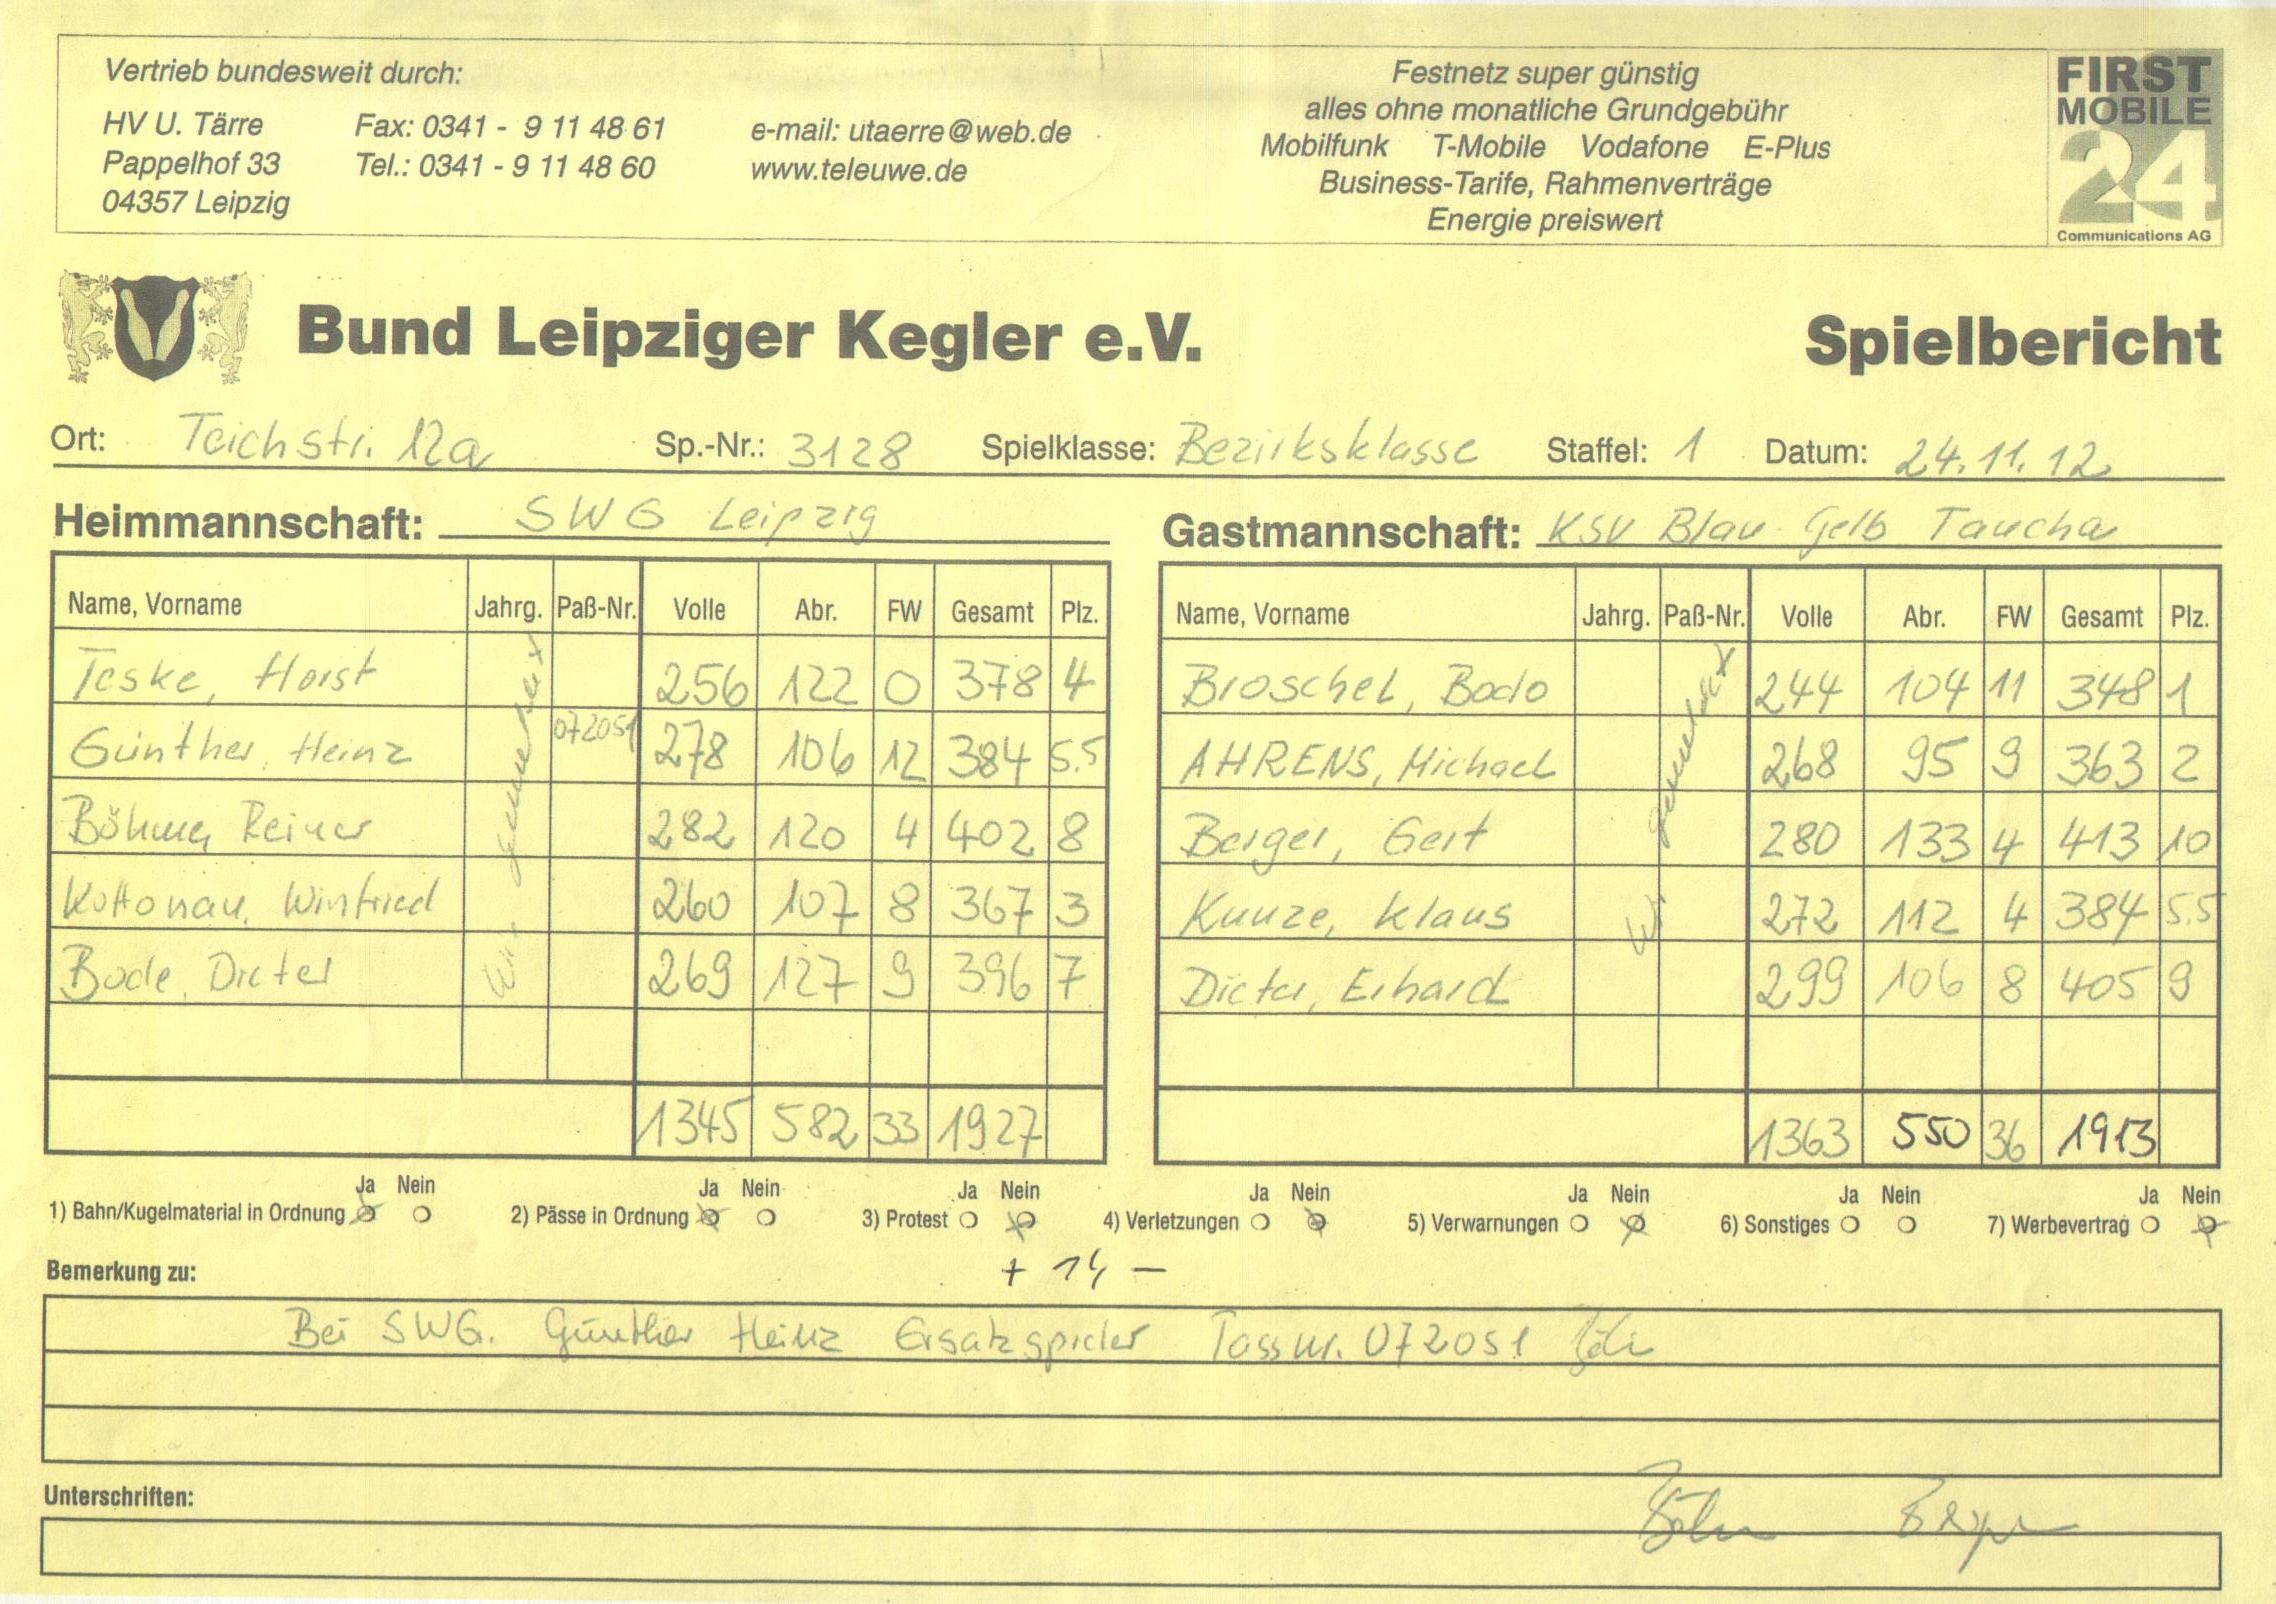 Vertrieb bundesweit durch:
HV U. Tärre Fax: 0341 - 9 11 48 61 e-mail: utaerre@web.de
Pappelhof 33 Tel.: 0341 - 9 11 48 60 www.teleuwe.de
04357 Leipzig
Festnetz super günstig
alles ohne monatliche Grundgebühr
Mobilfunk T-Mobile Vodafone E-Plus
Business-Tarife, Rahmenverträge
Energie preiswert
FIRST
MOBILE
24
Communications AG
Bund Leipziger Kegler e.V. Spielbericht
Ort: Teichstr. 12a Sp.-Nr.: 3128 Spielklasse: Bezirksklasse Staffel: 1 Datum: 24.11.12
Heimmannschaft: SWG Leipzig
Name, Vorname Jahrg. Paß-Nr. Volle Abr. FW Gesamt Plz.
Teske, Horst 256 122 0 378 4
Günther, Heinz 072051 278 106 12 384 5.5
Böhme, Reiner 282 120 4 402 8
Kottonau, Winfried 260 107 8 367 3
Bode, Dieter 269 127 9 396 7
1345 582 33 1927
Gastmannschaft: KSV Blau Gelb Taucha
Name, Vorname Jahrg. Paß-Nr. Volle Abr. FW Gesamt Plz.
Broschel, Bodo 244 104 11 348 1
AHRENS, Michael 268 95 9 363 2
Berger, Gert 280 133 4 413 10
Kunze, Klaus 272 112 4 384 5.5
Dieter, Erhard 299 106 8 405 9
1363 550 36 1913
Ja Nein Ja Nein Ja Nein Ja Nein Ja Nein Ja Nein Ja Nein
1) Bahn/Kugelmaterial in Ordnung 2) Pässe in Ordnung 3) Protest 4) Verletzungen 5) Verwarnungen 6) Sonstiges 7) Werbevertrag
Bemerkung zu: + 14 -
Bei SWG. Günther Heinz Ersatzspieler Passnr. 072051
Unterschriften: